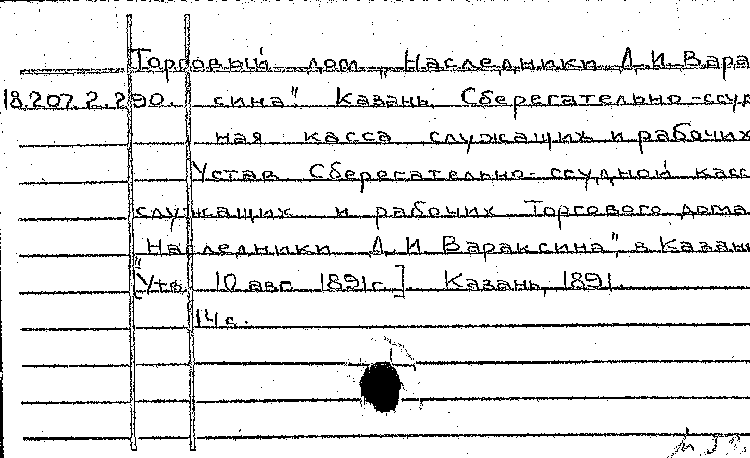 Торговый дом „Наследники Д. И. Вара
18.207.2.290. сина". Казань. Сберегательно-ссуд
ная касса служащих и рабочих
Устав Сберегательно-ссудной касс
служащих и рабочих Торгового дома
„Наследники Д. И. Вараксина", в Казани
[Утв. 10 авг. 1891 г.]. Казань, 1891.
14 с.